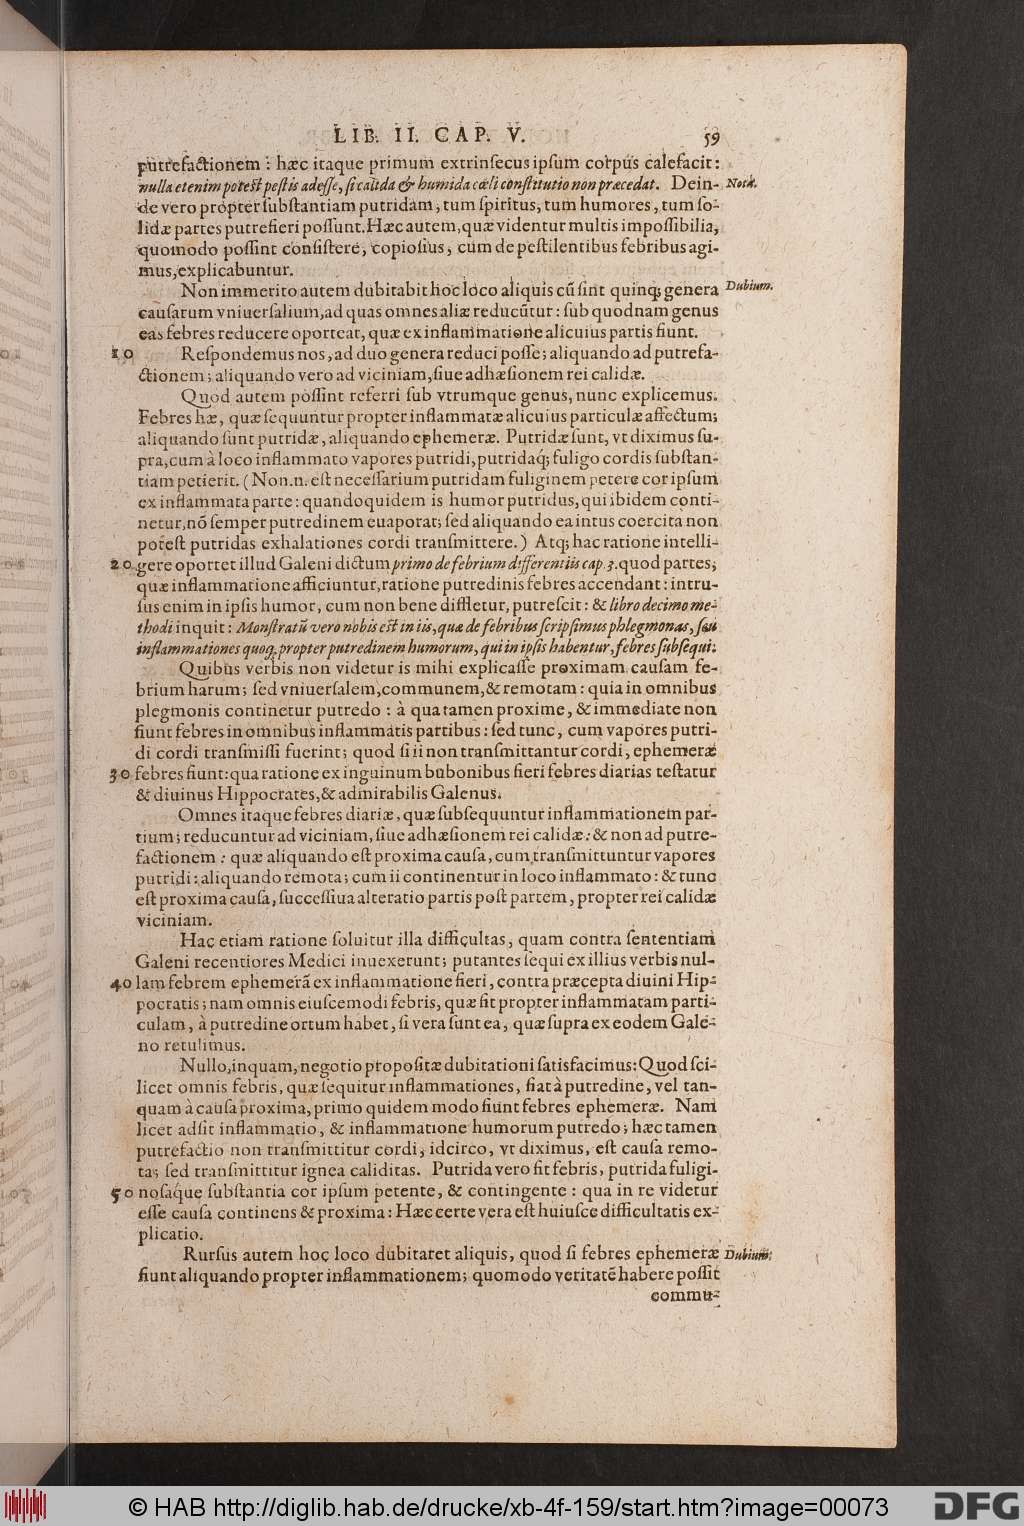 LIB. II. CAP. V. 59
putrefactionem : hæc itaque primum extrinſecus ipſum corpus calefacit:
nulla etenim poteſt peſtis adeſſe, ſi calida & humida cœli conſtitutio non præcedat. Dein- Nota.
de vero propter ſubſtantiam putridam, tum ſpiritus, tum humores, tum ſo-
lidæ partes putrefieri poſſunt. Hæc autem, quæ videntur multis impoſſibilia,
quomodo poſſint conſiſtere, copioſius, cum de peſtilentibus febribus agi-
mus, explicabuntur.
Non immerito autem dubitabit hoc loco aliquis cũ ſint quinq; genera Dubium.
cauſarum vniuerſalium, ad quas omnes aliæ reducũtur: ſub quodnam genus
eas febres reducere oporteat, quæ ex inflammatione alicuius partis fiunt.
10 Reſpondemus nos, ad duo genera reduci poſſe; aliquando ad putrefa-
ctionem; aliquando vero ad viciniam, ſiue adhæſionem rei calidæ.
Quod autem poſſint referri ſub vtrumque genus, nunc explicemus.
Febres hæ, quæ ſequuntur propter inflammatæ alicuius particulæ affectum;
aliquando ſunt putridæ, aliquando ephemeræ. Putridæ ſunt, vt diximus ſu-
pra, cum à loco inflammato vapores putridi, putridaq́; fuligo cordis ſubſtan-
tiam petierit. (Non.n. eſt neceſſarium putridam fuliginem petere cor ipſum
ex inflammata parte: quandoquidem is humor putridus, qui ibidem conti-
netur, nõ ſemper putredinem euaporat; ſed aliquando ea intus coercita non
poteſt putridas exhalationes cordi tranſmittere.) Atq; hac ratione intelli-
20 gere oportet illud Galeni dictum primo de febrium differentiis cap. 3. quod partes;
quæ inflammatione afficiuntur, ratione putredinis febres accendant: intru-
ſus enim in ipſis humor, cum non bene diffletur, putreſcit: & libro decimo me-
thodi inquit: Monſtratũ vero nobis eſt in iis, quæ de febribus ſcripſimus phlegmonas, ſeu
inflammationes quoq, propter putredinem humorum, qui in ipſis habentur, febres ſubſequi.
Quibus verbis non videtur is mihi explicaſſe proximam cauſam fe-
brium harum; ſed vniuerſalem, communem, & remotam: quia in omnibus
plegmonis continetur putredo : à qua tamen proxime, & immediate non
fiunt febres in omnibus inflammatis partibus: ſed tunc, cum vapores putri-
di cordi tranſmiſſi fuerint; quod ſi ii non tranſmittantur cordi, ephemeræ
30 febres fiunt: qua ratione ex inguinum bubonibus fieri febres diarias teſtatur
& diuinus Hippocrates, & admirabilis Galenus.
Omnes itaque febres diariæ, quæ ſubſequuntur inflammationem par-
tium; reducuntur ad viciniam, ſiue adhæſionem rei calidæ: & non ad putre-
factionem : quæ aliquando eſt proxima cauſa, cum tranſmittuntur vapores
putridi: aliquando remota; cum ii continentur in loco inflammato: & tunc
eſt proxima cauſa, ſucceſſiua alteratio partis poſt partem, propter rei calidæ
viciniam.
Hac etiam ratione ſoluitur illa difficultas, quam contra ſententiam
Galeni recentiores Medici inuexerunt; putantes ſequi ex illius verbis nul-
40 lam febrem ephemerã ex inflammatione fieri, contra præcepta diuini Hip-
pocratis; nam omnis eiuſcemodi febris, quæ fit propter inflammatam parti-
culam, à putredine ortum habet, ſi vera ſunt ea, quæ ſupra ex eodem Gale-
no retulimus.
Nullo, inquam, negotio propoſitæ dubitationi ſatisfacimus: Quod ſci-
licet omnis febris, quæ ſequitur inflammationes, fiat à putredine, vel tan-
quam à cauſa proxima, primo quidem modo fiunt febres ephemeræ. Nam
licet adſit inflammatio, & inflammatione humorum putredo; hæc tamen
putrefactio non tranſmittitur cordi; idcirco, vt diximus, eſt cauſa remo-
ta; ſed tranſmittitur ignea caliditas. Putrida vero fit febris, putrida fuligi-
50 noſaque ſubſtantia cor ipſum petente, & contingente : qua in re videtur
eſſe cauſa continens & proxima: Hæc certe vera eſt huiuſce difficultatis ex-
plicatio.
Rurſus autem hoc loco dubitaret aliquis, quod ſi febres ephemeræ Dubium:
fiunt aliquando propter inflammationem; quomodo veritatẽ habere poſſit
commu-
© HAB http://diglib.hab.de/drucke/xb-4f-159/start.htm?image=00073 DFG